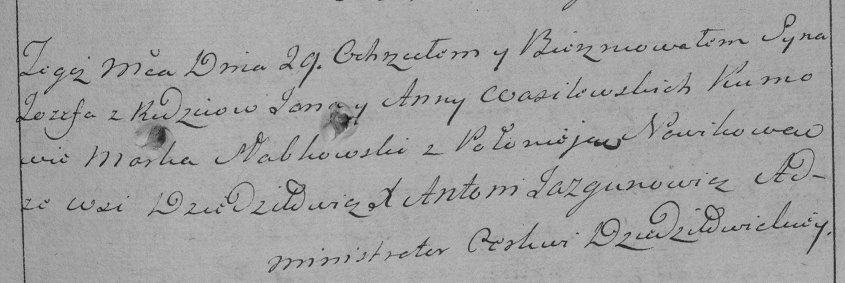 Tegoż Mca Dnia 29. Ochrzciłem y Bierzmowałem Syna
Jozefa z Rodzicow Jana y Anny Wasilewskich Kumo
wie Marka Małkowski z Połonieją Nowikową
ze wsi Dziedziłowicz X Antoni Jazgunowicz Ad-
ministrator Cerkwi Dziedziłowickiey.